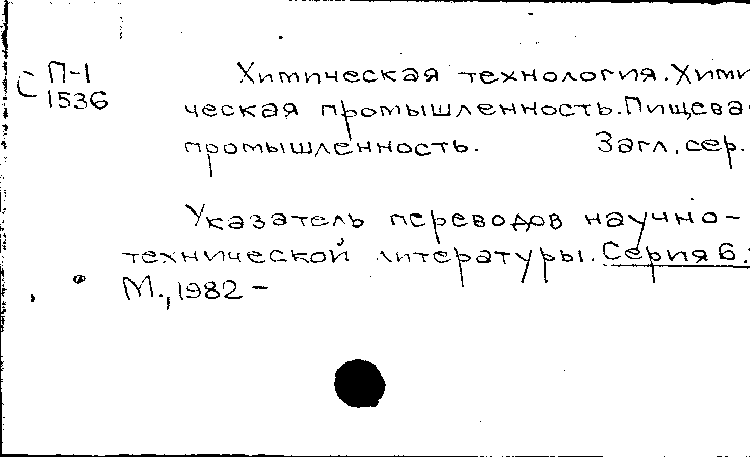 С П-1
1536
Химическая технология. Хими
ческая промышленность. Пищева
промышленность. Загл. сер.
Указатель переводов научно-
технической литературы. Серия 6.
М., 1982 -